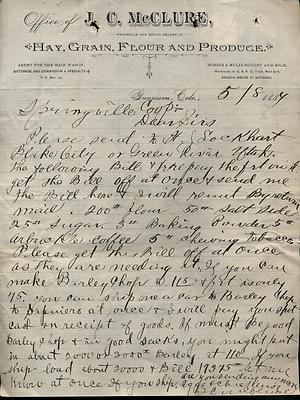 Office of J. C. McCLURE,
WHOLESALE AND RETAIL DEALER IN
HAY, GRAIN, FLOUR AND PRODUCE.
AGENT FOR THE BAIN WAGON.
STORAGE AND COMMISSION A SPECIALTY
HORSES & MULES BOUGHT AND SOLD.
Gunnison, Colo. 5/8 1884
Springville Coop
Dear Sirs
Please send
Blake City or Green River Utah.
The following Bill & prepay the frt on it
get the Bill off at once & send me
the Bill here & I will remit By return
mail. 200# flour 50# Salt Side
25# Sugar. 3# Baking Powder 5#
arbuckles coffee 5# chewing tobacco.
Please get this Bill off at once
as they are needing it, if you can
make Barley Chop @ 115 & frt is only
75, you can ship me a car to Barley Chop
to at once & I will pay you spot
cash on receipt of goods. It must be good
Barley Chop & in good sacks, you might put
in about 2000 or 3000# Barley at 110 If you
ship load about 20000 & Bill let me
know at once if you ship.